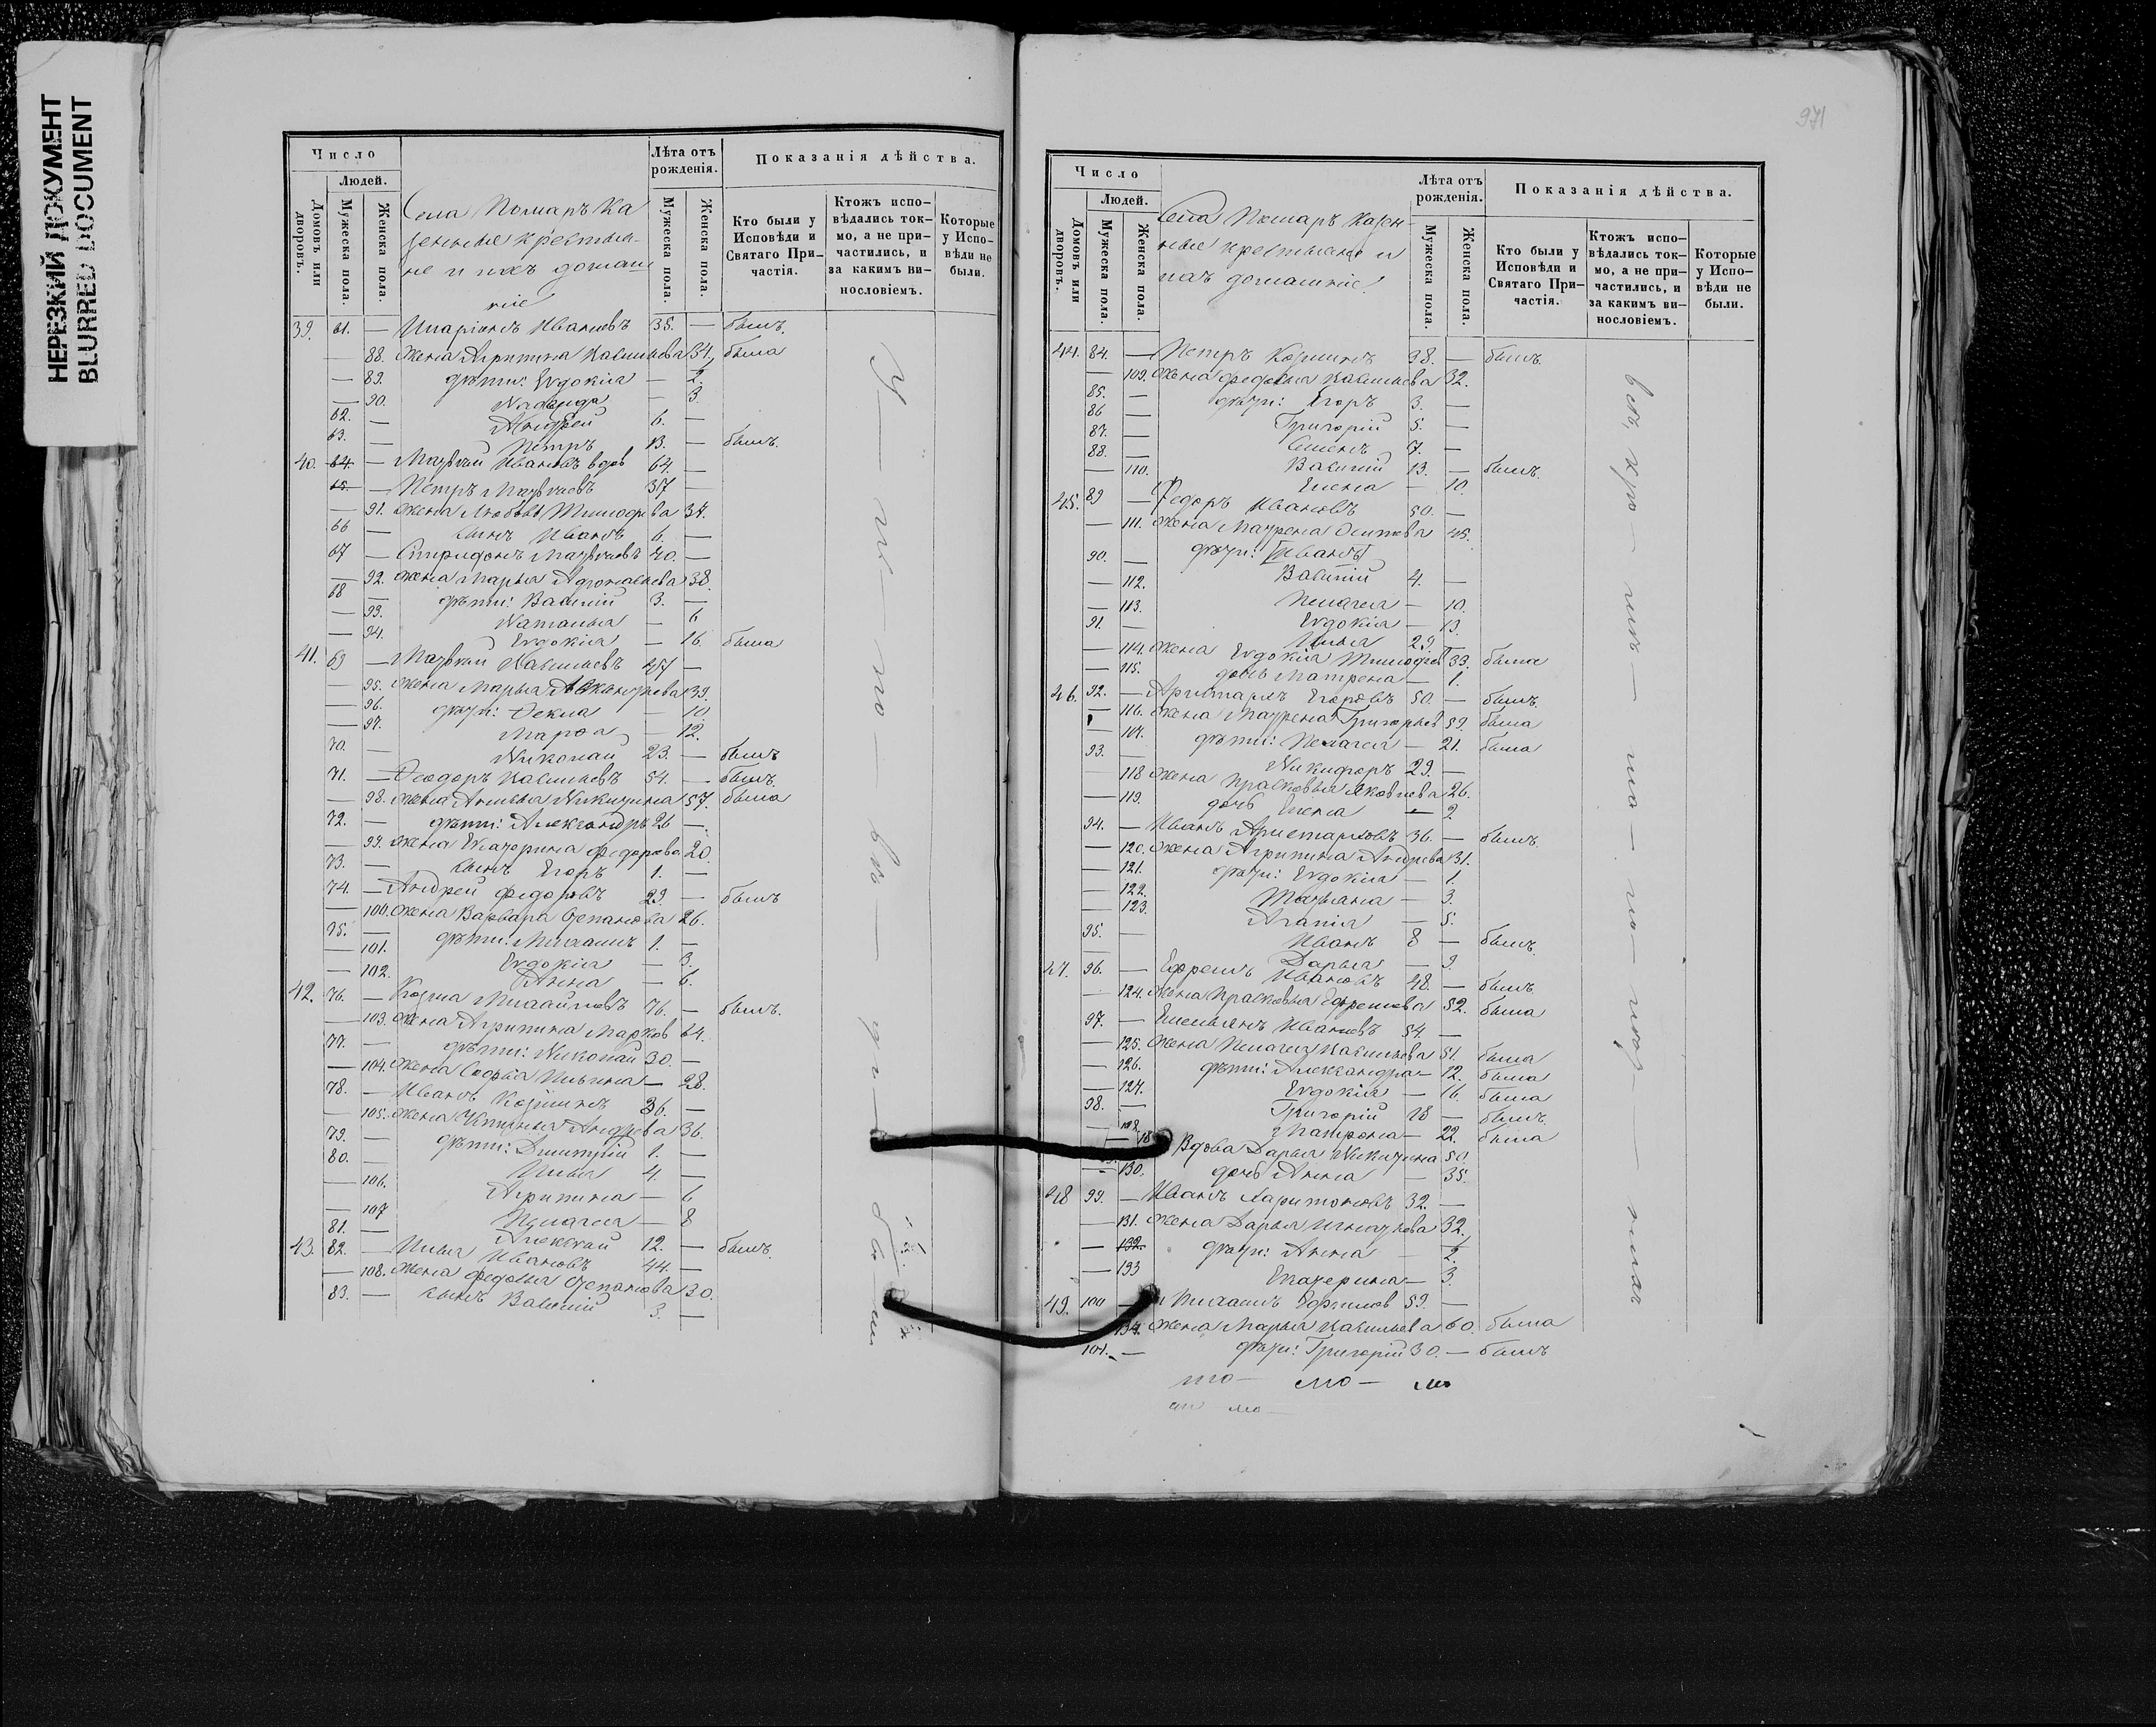 НЕРЕЗКИЙ ДОКУМЕНТ
BLURRED DOCUMENT
Число
Людей.
Домовъ или дворовъ.
Мужеска пола.
Женска пола.
Села Помаръ Ка
зенные крестья-
не и ихъ домаш
ніе
Лѣта отъ рожденія.
Мужеска пола.
Женска пола.
Показанія дѣйства.
Кто были у Исповѣди и Святаго При-частія.
Ктожъ испо-вѣдались ток-мо, а не при-частились, и за какимъ ви-нословіемъ.
Которые у Испо-вѣди не были.
39. 61. — Иларіонъ Ивановъ 35. — былъ.
— 88. жена Агрипина Васильева 34, была
— 89. дѣти: Евдокія — 2.
— 90. Надежда — 3.
62. — Андрей 6. —
63. — Петръ 13. — былъ.
40. 64. — Матвей Ивановъ вдов 64. —
65. — Петръ Матвеевъ 37 —
— 91. жена Любовь Тимофеева 37.
66 сынъ Иванъ 6. —
67 — Спиридонъ Матвеевъ 40. —
— 92. жена Марья Афонасьева 38.
68 — дѣти: Василій 3. —
— 93. Наталья — 6
— 94. Евдокія — 16. была
41. 69 — Матвей Васильевъ 47 —
— 95. жена Марья Александрова 39.
— 96. дѣти: Фекла — 10
— 97. Марфа — 12.
70. — Николай 23. — былъ
71. — Феодоръ Васильевъ 54. — былъ.
— 98. жена Анисья Никитина 57. была
72. — дѣти: Александръ 26 —
— 99. жена Екатерина Федорова 20.
73. — сынъ Егоръ 1. —
74. — Андрей Федоровъ 29. — былъ
— 100. жена Варвара Степанова 26.
75. — дѣти: Михаилъ 1. —
— 101. Евдокія — 3.
— 102. Анна — 6.
42. 76. — Козма Михайловъ 76. — былъ.
— 103. жена Агрипина Марков 64.
77. — дѣти: Николай 30. —
— 104. жена Софья Ильина — 28.
78. — Иванъ Козминъ 36. —
— 105. жена Устинья Андрева 36.
79. — дѣти: Дмитрій 1. —
80. — Илья 4. —
— 106. Агрипина — 6
— 107 Пелагея — 8
81. — Алексей 12. — былъ.
43. 82. — Илья Ивановъ 44. —
— 108. жена Федосья Степанова 30.
83. — сынъ Василій 3. —
971
Число
Людей.
Домовъ или дворовъ.
Мужеска пола.
Женска пола.
Села Помаръ Казен-
ные крестьяне и
ихъ домашніе
Лѣта отъ рожденія.
Мужеска пола.
Женска пола.
Показанія дѣйства.
Кто были у Исповѣди и Святаго При-частія.
Ктожъ испо-вѣдались ток-мо, а не при-частились, и за какимъ ви-нословіемъ.
Которые у Испо-вѣди не были.
44. 84. — Петръ Козминъ 38. — былъ.
— 109. жена Федосья Васильева 32.
85. — дѣти: Егоръ 3. —
86 — Григорій 5. —
87. — Семенъ 7. —
88. — Василій 13. — былъ.
— 110. Елена — 10.
45. 89 — Федоръ Ивановъ 50. —
— 111. жена Маурена Осипова 45.
90. — дѣти: [Иванъ]
Василій 4. —
— 112. Пелагея — 10.
— 113. Евдокія — 13.
91. — Илья 29. —
— 114. жена Евдокія Тимофеев 33. была
— 115. дочь Матрена — 1.
46. 92. — Аристархъ Егоровъ 50. — былъ.
— 116. жена Маурена Григорьев 59. была
— 117. дѣти: Пелагея — 21. была
93. — Никифоръ 29. —
118 жена Прасковья Яковлева 26.
— 119. дочь Елена — 2
94. — Иванъ Аристарховъ 36. — былъ.
— 120. жена Агрипина Андрева 31.
— 121. дѣти: Евдокія — 1.
— 122. Татьяна — 3.
— 123. Агапія — 5.
95. — Иванъ 8 — былъ.
Дарья — 9.
47. 96. — Ефремъ Ивановъ 48. — былъ.
— 124. жена Прасковья Ефремова 52. была
97. — Емельянъ Ивановъ 54. —
— 125. жена Пелагея Васильева 51. была
— 126. дѣти: Александра — 12. была
— 127. Евдокія — 16. была
98. — Григорій 18 — былъ.
— 128. Матрона — 22. была
Вдова Дарья Никитина 50.
— 130. дочь Анна — 35.
48 99. — Иванъ Харитоновъ 32. —
— 131. жена Дарья Игнатьева 32.
— 132. дѣти: Анна — 2.
— 133 Екатерина — 3.
49. 100 — Михаилъ Ефимов 59. —
134. жена Марья Васильева 60. была
101. — дѣти: Григорій 30. — былъ